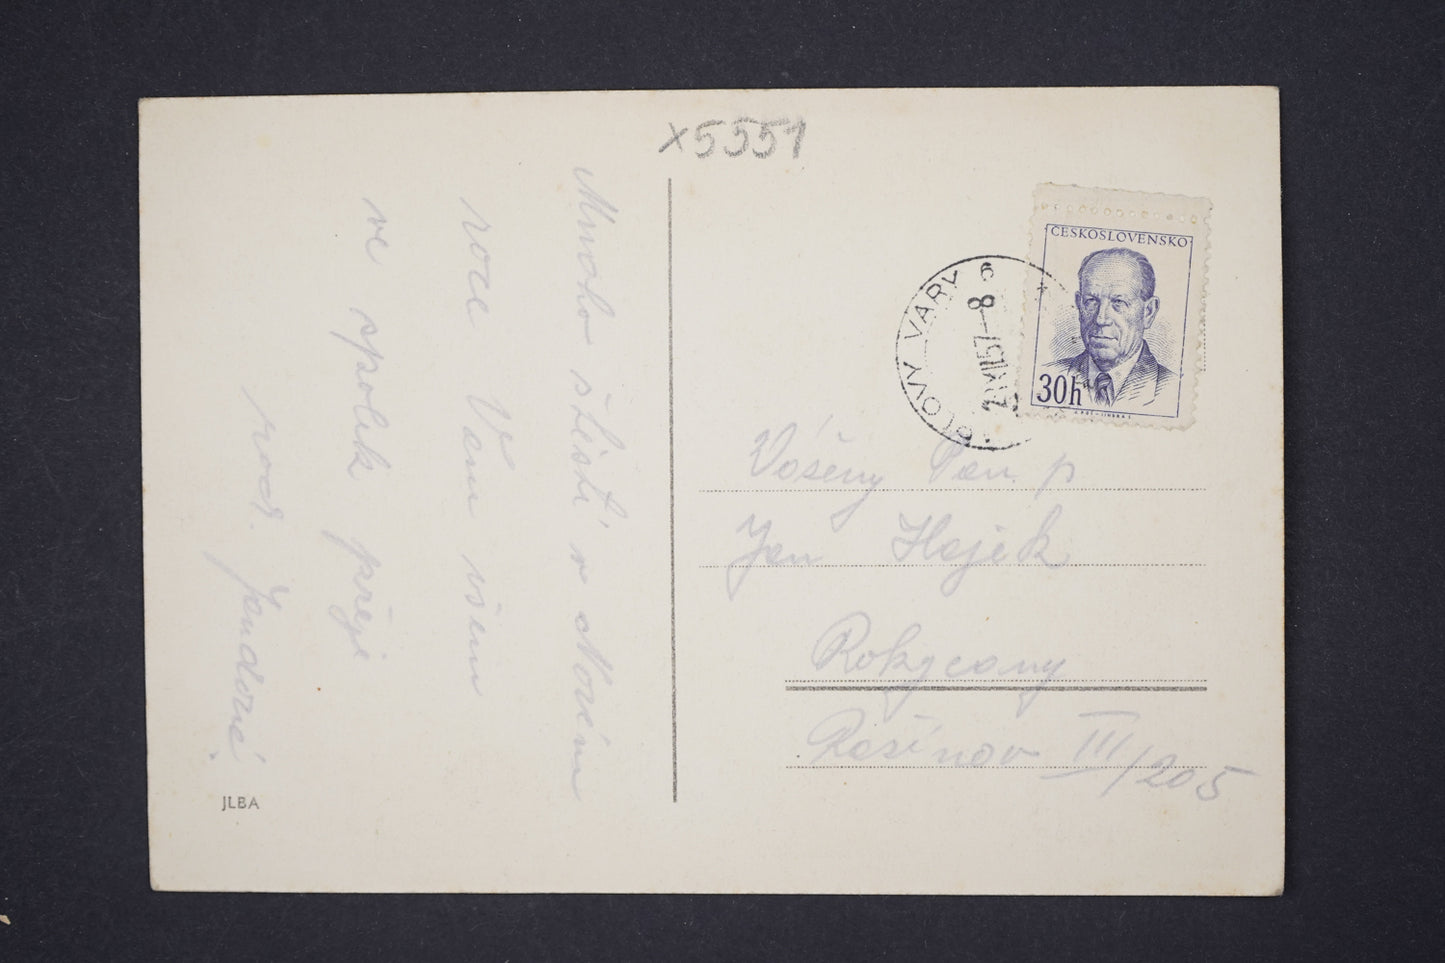 x5551
Mnoho štěstí v Novém
roce Vám všem
ve spolek přeje
rod. Jandové.
JLBA
ČESKOSLOVENSKO
30h
KARLOVY VARY
6
2 XII 57 - 8
Váženy Pan p
Jan Hajek
Rokycany
Rašínov III/205